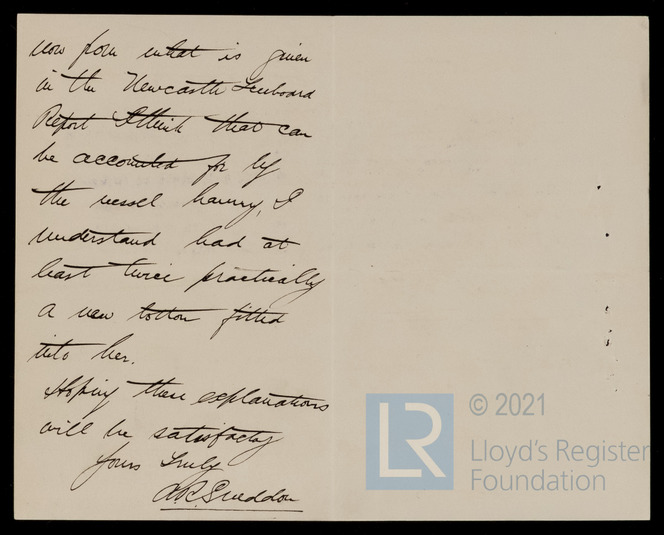 now from what is given
in the Newcastle Freeboard
Report I think that can
be accounted for by
the vessel having, I
understand had at
least twice practically
a new bottom fitted
into her.
Hoping these explanations
will be satisfactory
Yours Truly
A.R. Sneddon
LR
© 2021
Lloyd's Register
Foundation